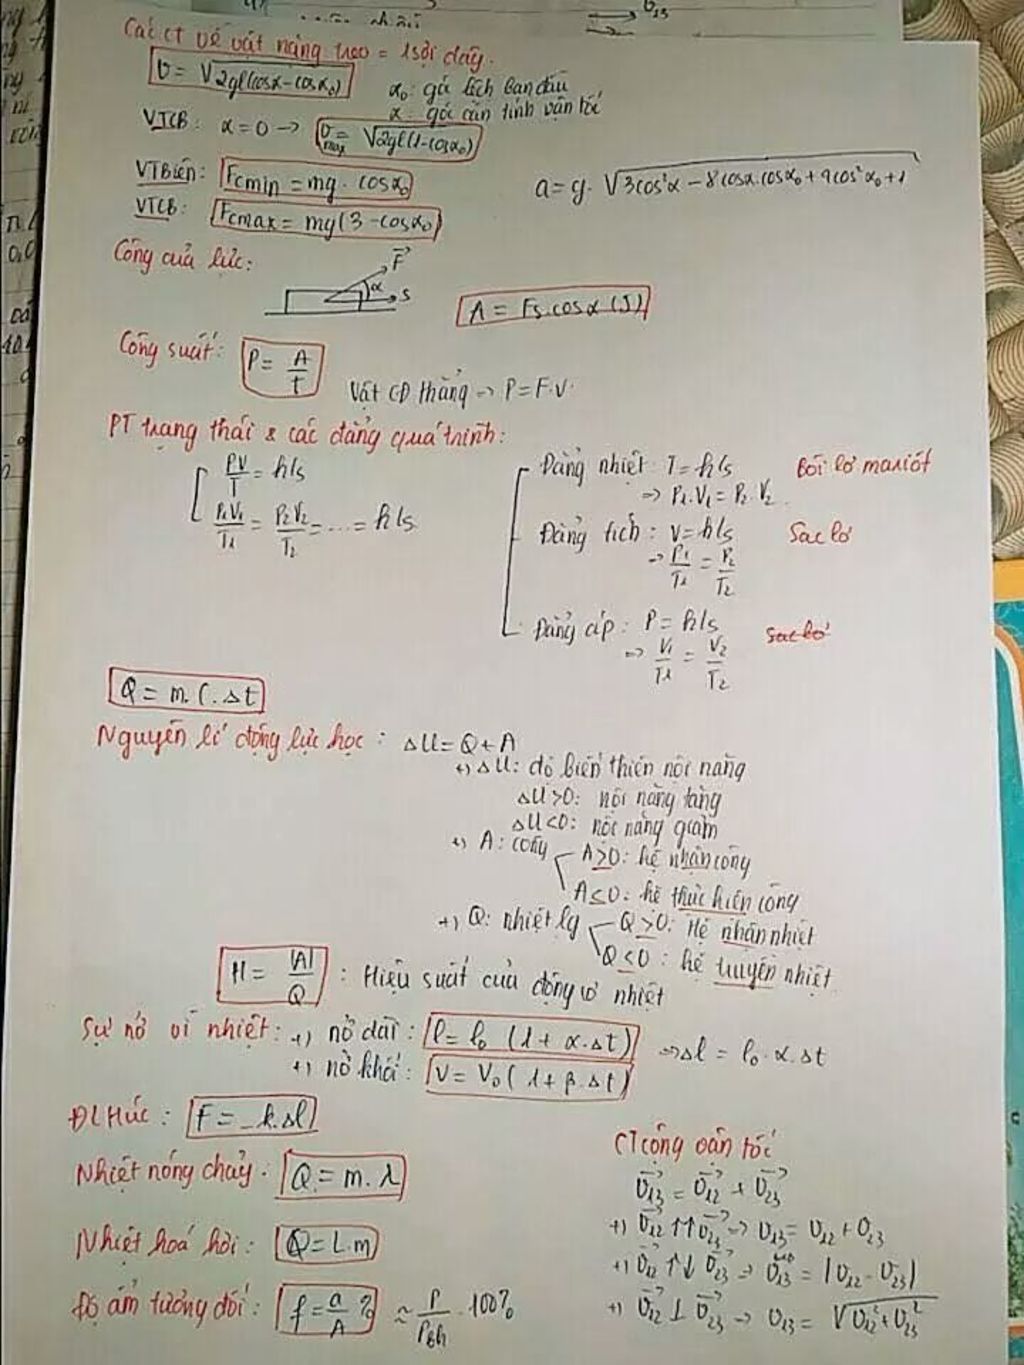 Các CT về vật nặng treo = 1 sợi dây.
v = √2gl(cosα - cosα₀)
α₀: góc lệch ban đầu
α: góc cần tính vận tốc
VTCB: α = 0 → v max = √2gl(1-cosα₀)
VTBiên: Fcmin = mg. cosα₀
a = g. √3cos²α - 8cosα.cosα₀ + 4cos²α₀ + 1
VTCB: Fcmax = mg(3 - cosα₀)
Công của lực:
F
α
s
A = Fs.cosα (J)
Công suất: P = A/t
Vật CĐ thẳng → P = F.v
PT trạng thái & các đẳng quá trình:
PV/T = h/s
P₁V₁/T₁ = P₂V₂/T₂ = ... = h/s
Đẳng nhiệt: T = h/s Bôi lơ mariốt
⇒ P₁.V₁ = P₂.V₂
Đẳng tích: V = h/s Sac lơ
→ P₁/T₁ = P₂/T₂
Đẳng áp: P = h/s Sac lơ
⇒ V₁/T₁ = V₂/T₂
Q = m.C.Δt
Nguyên lí động lực học: ΔU = Q + A
+) ΔU: độ biến thiên nội năng
ΔU>0: nội năng tăng
ΔU<0: nội năng giảm
+) A: công
A>0: hệ nhận công
A≤0: hệ thực hiện công
+) Q: nhiệt lg
Q>0: Hệ nhận nhiệt
Q<0: hệ truyền nhiệt
H = |A|/Q : Hiệu suất của động cơ nhiệt
Sự nở vì nhiệt: +) nở dài: l = l₀ (1 + α.Δt) ⇒ Δl = l₀.α.Δt
+) nở khối: V = V₀(1+β.Δt)
ĐL Húc: F = -k.Δl
Nhiệt nóng chảy: Q = m.λ
Nhiệt hoá hơi: Q = L.m
Độ ẩm tương đối: f = a/A % ≈ P/Pbh .100%
CT cộng vận tốc
v₁₃ = v₁₂ + v₂₃
+) v₁₂ ↑↑ v₂₃ → v₁₃ = v₁₂ + v₂₃
+) v₁₂ ↑↓ v₂₃ ⇒ v₁₃ = |v₁₂ - v₂₃|
+) v₁₂ ⊥ v₂₃ → v₁₃ = √v₁₂² + v₂₃²